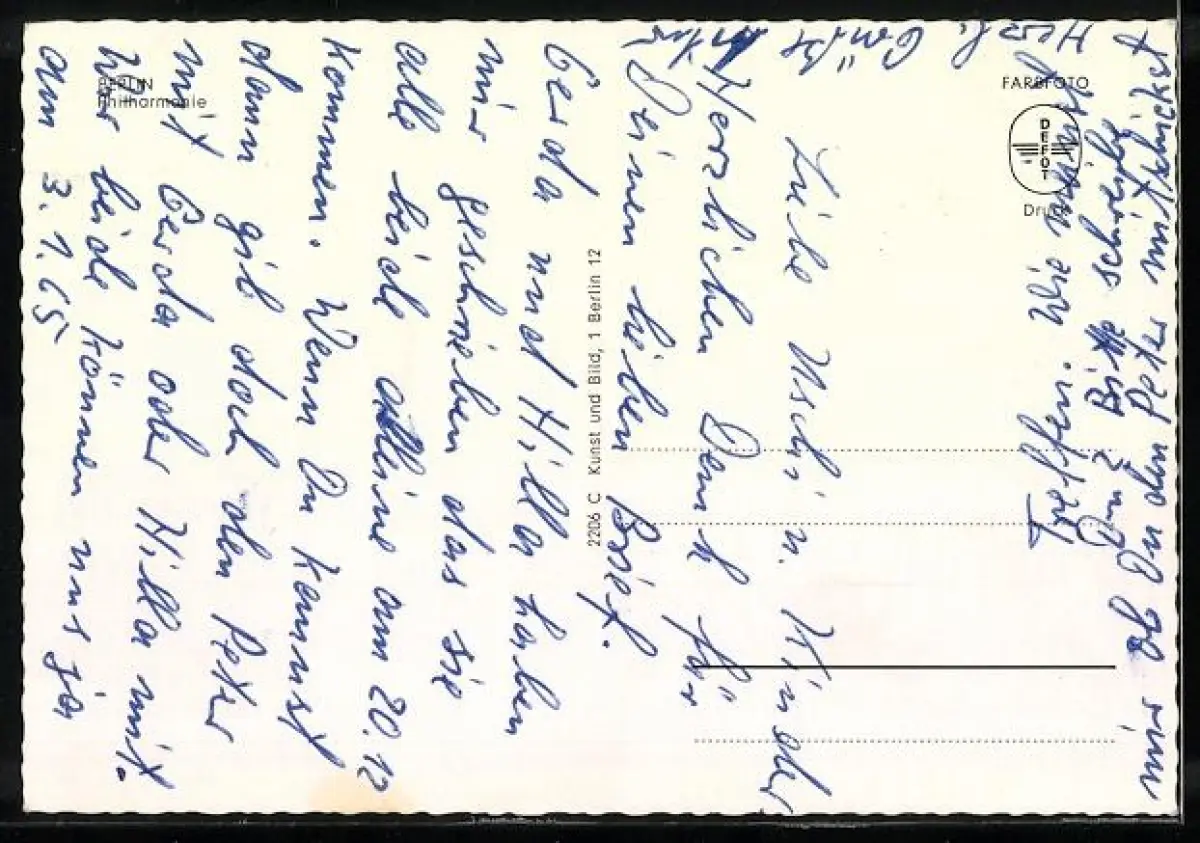 BERLIN
Philharmonie
FARBFOTO
DEFOT
Druck
2206 C Kunst und Bild, 1 Berlin 12
Liebe Uschi u. Kinder
Herzlichen Dank für
Deinen lieben Brief.
Gerda und Hilla haben
mir geschrieben das sie
alle beide alleine am 20.12
kommen. Wenn Du kommst
dann gib doch den Peter
mit Gerda oder Hilla mit.
Wir beide können uns ja
am 3.1.65
treffen. Wie
und Bitte schreibe
den Peter mit
Herzl. Grüße